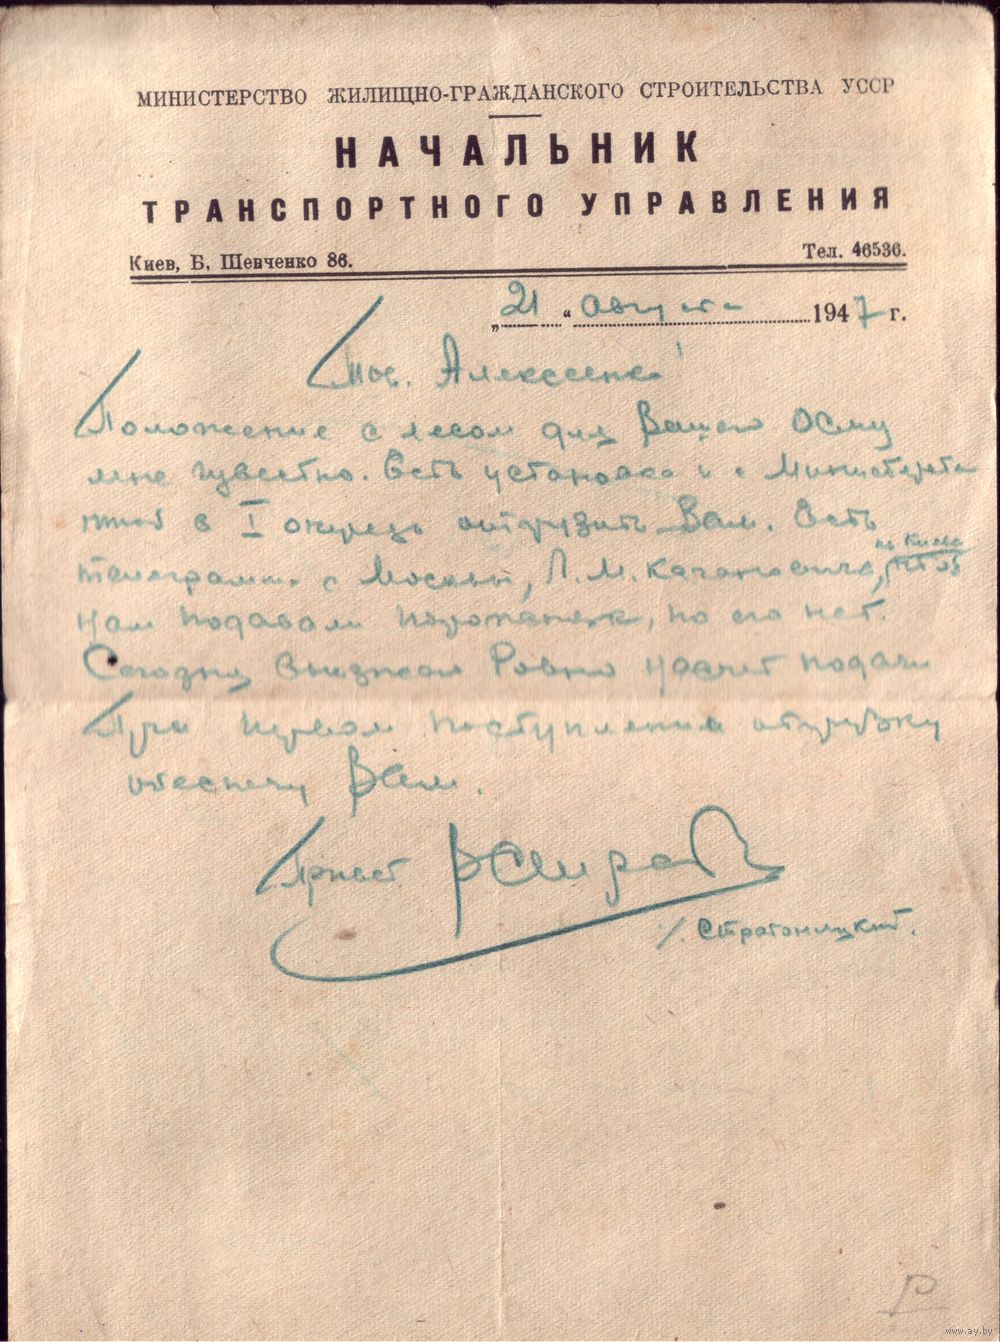 МИНИСТЕРСТВО ЖИЛИЩНО-ГРАЖДАНСКОГО СТРОИТЕЛЬСТВА УССР
НАЧАЛЬНИК
ТРАНСПОРТНОГО УПРАВЛЕНИЯ
Киев, Б. Шевченко 86.
Тел. 46536.
„21“ августа 1947 г.
Тов. Алексеенко!
Положение с лесом для Вашего ОСМУ
мне известно. Есть установка и с Министерства
в I очередь отгрузить Вам. Есть
из Киева
телеграмма с Москвы, Л.М. Кагановича, чтоб
нам подавали порожняк, но его нет.
Сегодня Ровно насчет подачи
При первом поступлении отгрузку
обеспечу Вам.
Привет.
/. Стратоницкий.
www.ay.by